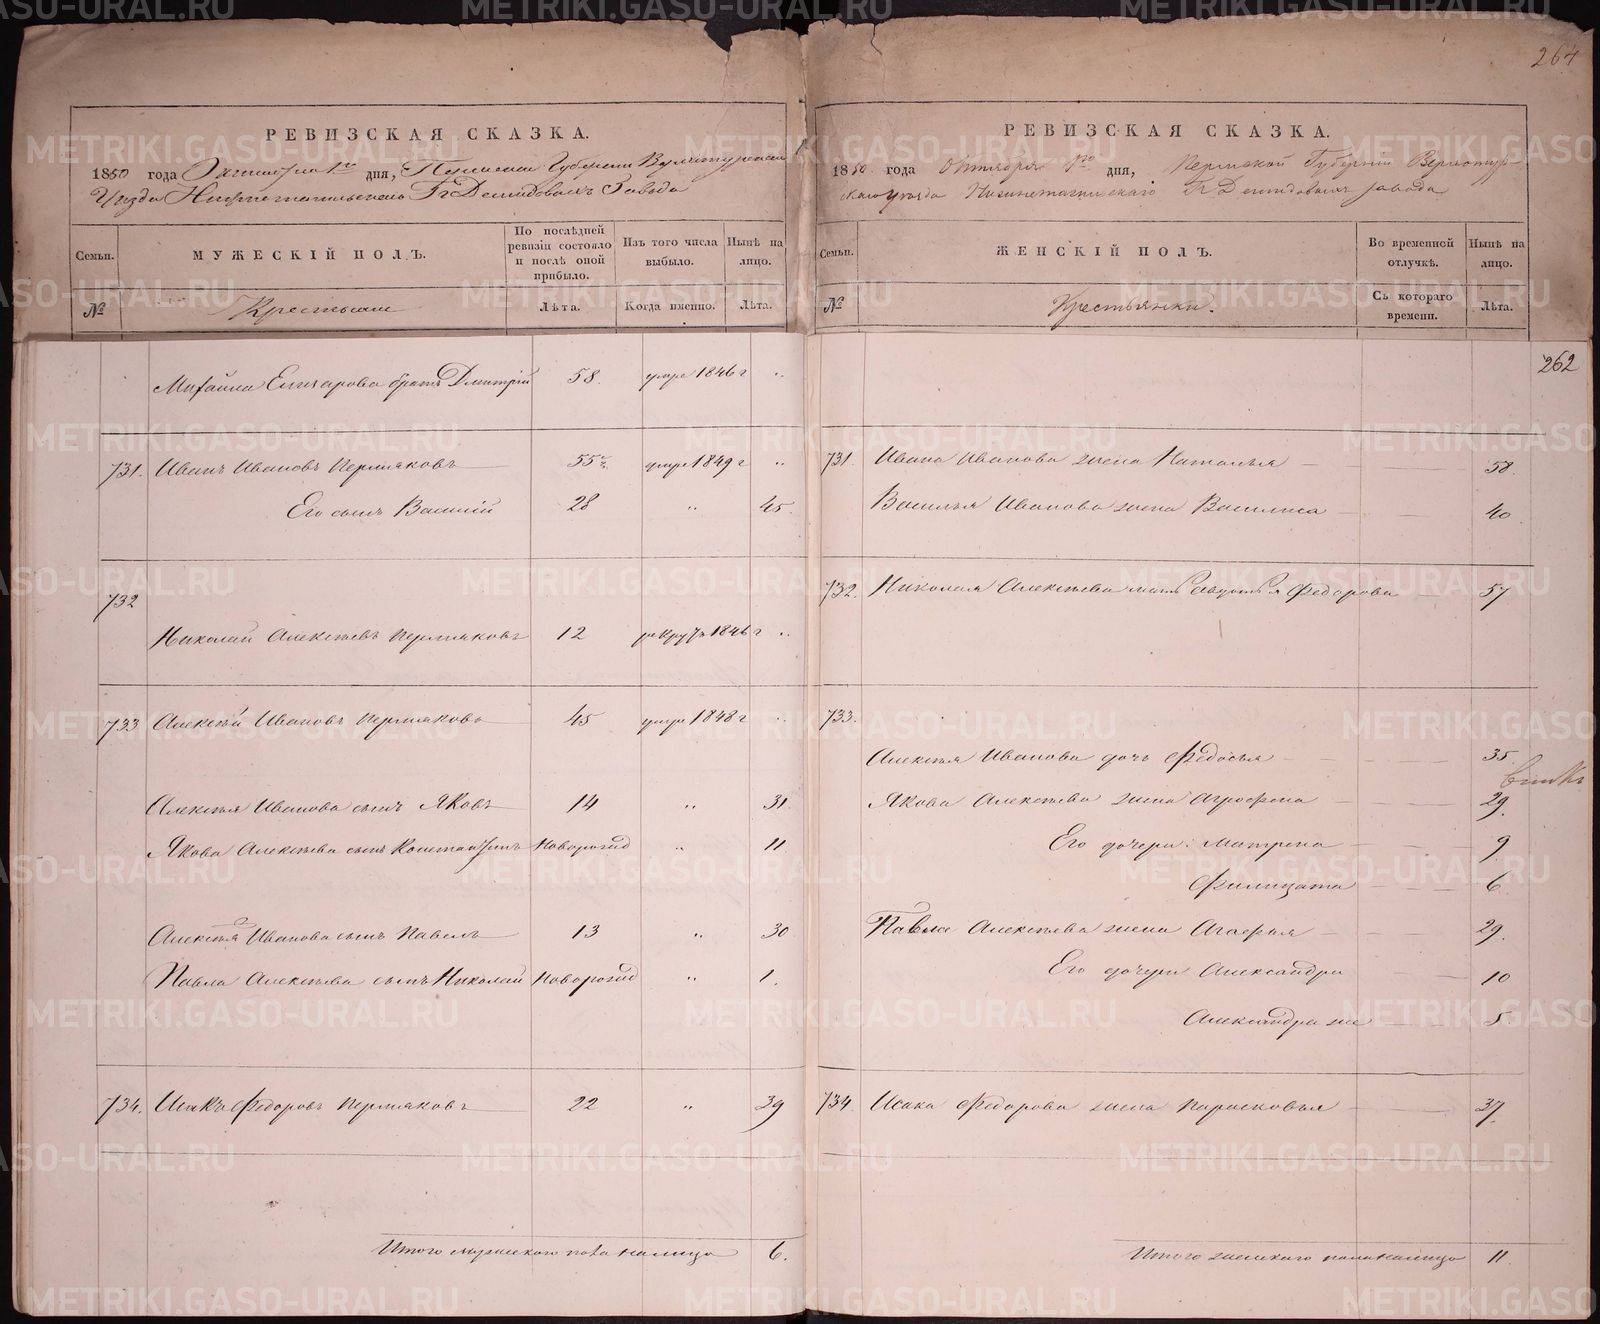 264
РЕВИЗСКАЯ СКАЗКА.
1850 года Октября 1го дня, Пермской Губернии Верхотурскаго
Уезда Нижнетагильскаго Гг Демидовыхъ Завода
Семьи.
МУЖЕСКІЙ ПОЛЪ.
По последней ревизіи состояло и после оной прибыло.
Изъ того числа выбыло.
Ныне на лицо.
№
Крестьяне
Лѣта.
Когда именно.
Лѣта.
Михайла Елизарова братъ Дмитрій 58. умре 1846 г „
731. Иванъ Ивановъ Пермяковъ 55 умре 1849 г „
Его сынъ Василій 28 „ 45.
732
Николай Алексѣевъ Пермяковъ 12 1846 г „
733 Алексѣй Ивановъ Пермяковъ 45 умре 1848 г „
Алексѣя Иванова сынъ Яковъ 14 „ 31.
Якова Алексѣева сынъ Константинъ Новорожд „ 11
Алексѣя Иванова сынъ Павелъ 13 „ 30
Павла Алексѣева сынъ Николай Новорожд „ 1.
734. Исакъ Федоровъ Пермяковъ 22 „ 39
Итого мужескаго пола налицо 6.
РЕВИЗСКАЯ СКАЗКА.
1850. года Октября 1го дня, Пермской Губерніи Верхотур-
скаго уѣзда Нижнетагильскаго Гг Демидовыхъ завода
Семьи.
ЖЕНСКІЙ ПОЛЪ.
Во временной отлучкѣ.
Нынѣ на лицо.
№
Крестьянки.
Съ котораго времени.
Лѣта.
262
731. Ивана Иванова жена Наталья 58.
Василья Иванова жена Василиса 40
732. Николая Алексѣева мать Федорова 57
733.
Алексѣя Иванова дочь Федосья 35
Якова Алексѣева жена Агрофена 29.
Его дочери: Матрена 9
Филицата 6.
Павла Алексѣева жена Агафья 29.
Его дочери Александра 10
Александра же 5.
734 Исака Федорова жена Парасковья 37.
Итого женскаго пола налицо 11
METRIKI.GASO-URAL.RU